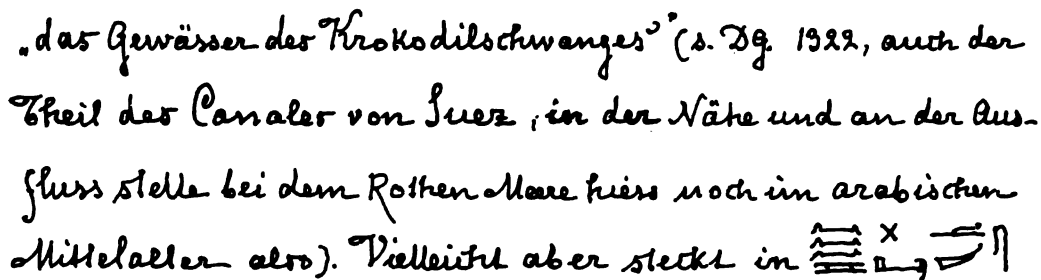 „das Gewässer des Krokodilschwanzes“ (s. DG. 1322, auch der
Theil des Canales von Suez, in der Nähe und an der Aus-
fluss stelle bei dem Rothen Meere hiess noch im arabischen
Mittelalter also). Vielleicht aber steckt in